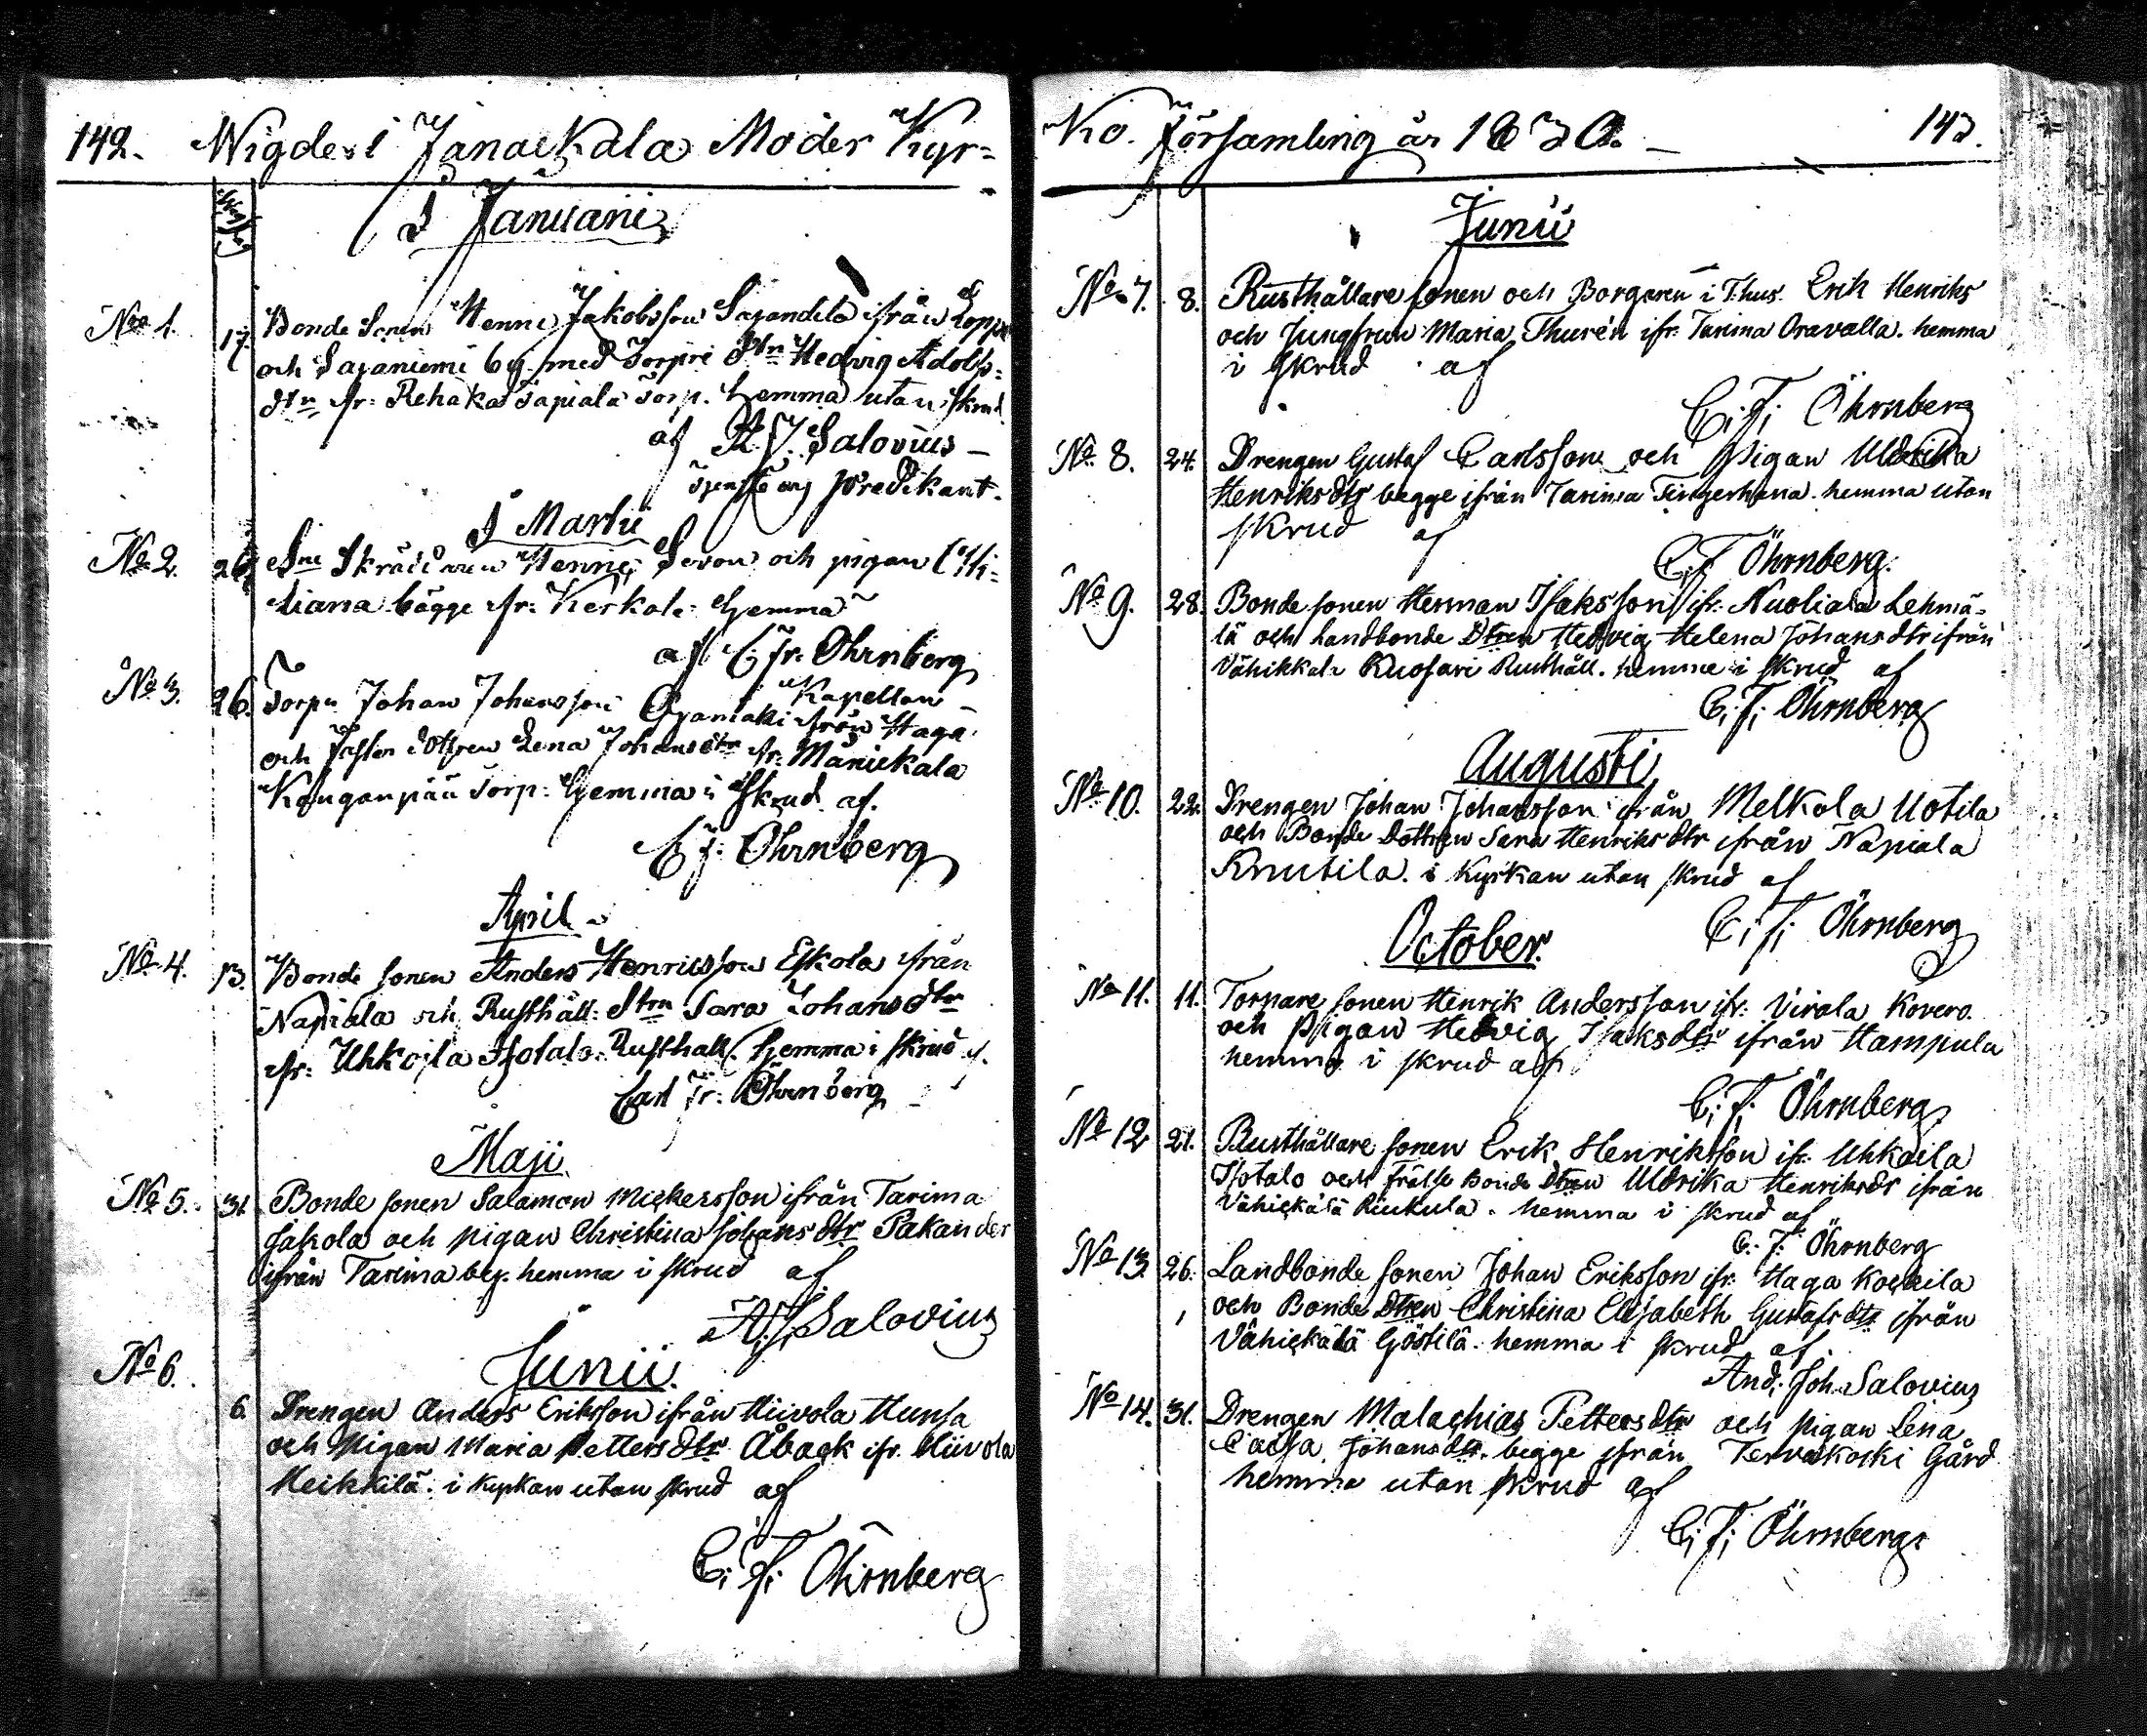 142. Wigde i Janackala Moder Kyr=
I Januarii
No 1. 17. Bonde Sonen Henric Jakobsson Sajandila ifrån Loppis
och Sajaniemi by med Torpare Dtrn Hedvig Adolfs=
dtn fr. Rehaka Tapiala Torp. hemma utan skrud
af A. J. Salovius
predikant.
I Martii
No 2. 26. Skräddaren Henric Sevon och pigan Chri=
stiana bägge fr. Kerkola hemma
af C. Fr. Öhrnberg
Kapellan
No 3. 26. Torpn Johan Johansson Ojamaki från Haga
och dottren Lena Johansdtr fr. Mäniekala
Kanganpää Torp. hemma i Skrud af.
C. F. Öhrnberg
April
No 4. 13. Bonde sonen Anders Henricsson Eskola ifrån
Napiala och Rusthåll: Dtrn Sara Johansdtr
fr. Uhkoila Isotalo Rusthåll. hemma i skrud af.
Carl Fr. Öhrnberg
Maji
No 5. 31. Bonde sonen Salamon Mickersson ifrån Tarima
Jakola och pigan Christina Johans dtr Pakander
ifrån Tarima by. hemma i skrud af
A. J. Salovius
Junii.
No 6. 6. Drengen Anders Eriksson ifrån Hiivola Hunsa
och Pigan Maria Petters dtr Åback ifr. Hiivola
Heikkilä. i kyrkan utan skrud af
C. F. Öhrnberg
Ko. Församling år 1830. 143.
Junii
No 7. 8. Rusthållare sonen och Borgaren i T.hus. Erik Henriks
och Jungfrun Maria Thurén ifr. Tarima Oravalla. hemma
i skrud af
C. F. Öhrnberg
No 8. 24. Drengen Gustaf Carlsson och Pigan Uldrika
Henriks dtr begge ifrån Tarima Tingerhana. hemma utan
skrud af
C. F. Öhrnberg.
No 9. 28. Bonde sonen Herman Isaksson ifr. Nuoliala Lehmä-
lä och Landbonde Dtren Hedvig Helena Johansdtr ifrån
Vähikkala Kuosari Rusthåll. hemma i skrud af
C. F. Öhrnberg
Augusti
No 10. 22. Drengen Johan Johansson ifrån Melkola Uotila
och Bonde Dottren Sara Henriks dtr ifrån Napiala
Knutila. i Kyrkan utan skrud af
C. F. Öhrnberg
October.
No 11. 11. Torpare sonen Henrik Andersson ifr. Virala Kovero
och Pigan Hedvig Isaksdtr ifrån Hampula
hemma i skrud af
C. F. Öhrnberg
No 12 21. Rusthållare sonen Erik Henriksson ifr. Uhkoila
Isotalo och Frälse Bonde Dtren Uldrika Henriksdr ifrån
Vähickälä Riukula. hemma i skrud af
C. F. Öhrnberg
No 13. 26. Landbonde sonen Johan Eriksson ifr. Haga Kockila
och Bonde Dtren Christina Elisabeth Gustafs dtr ifrån
Vähickälä Göstilä. hemma i skrud af
And. Joh. Salovius
No 14. 31. Drengen Malachias Petters dtr och pigan Lena
Caisa Johansdtr. begge ifrån Tervakoski Gård
hemma utan skrud af
C. F. Öhrnberg